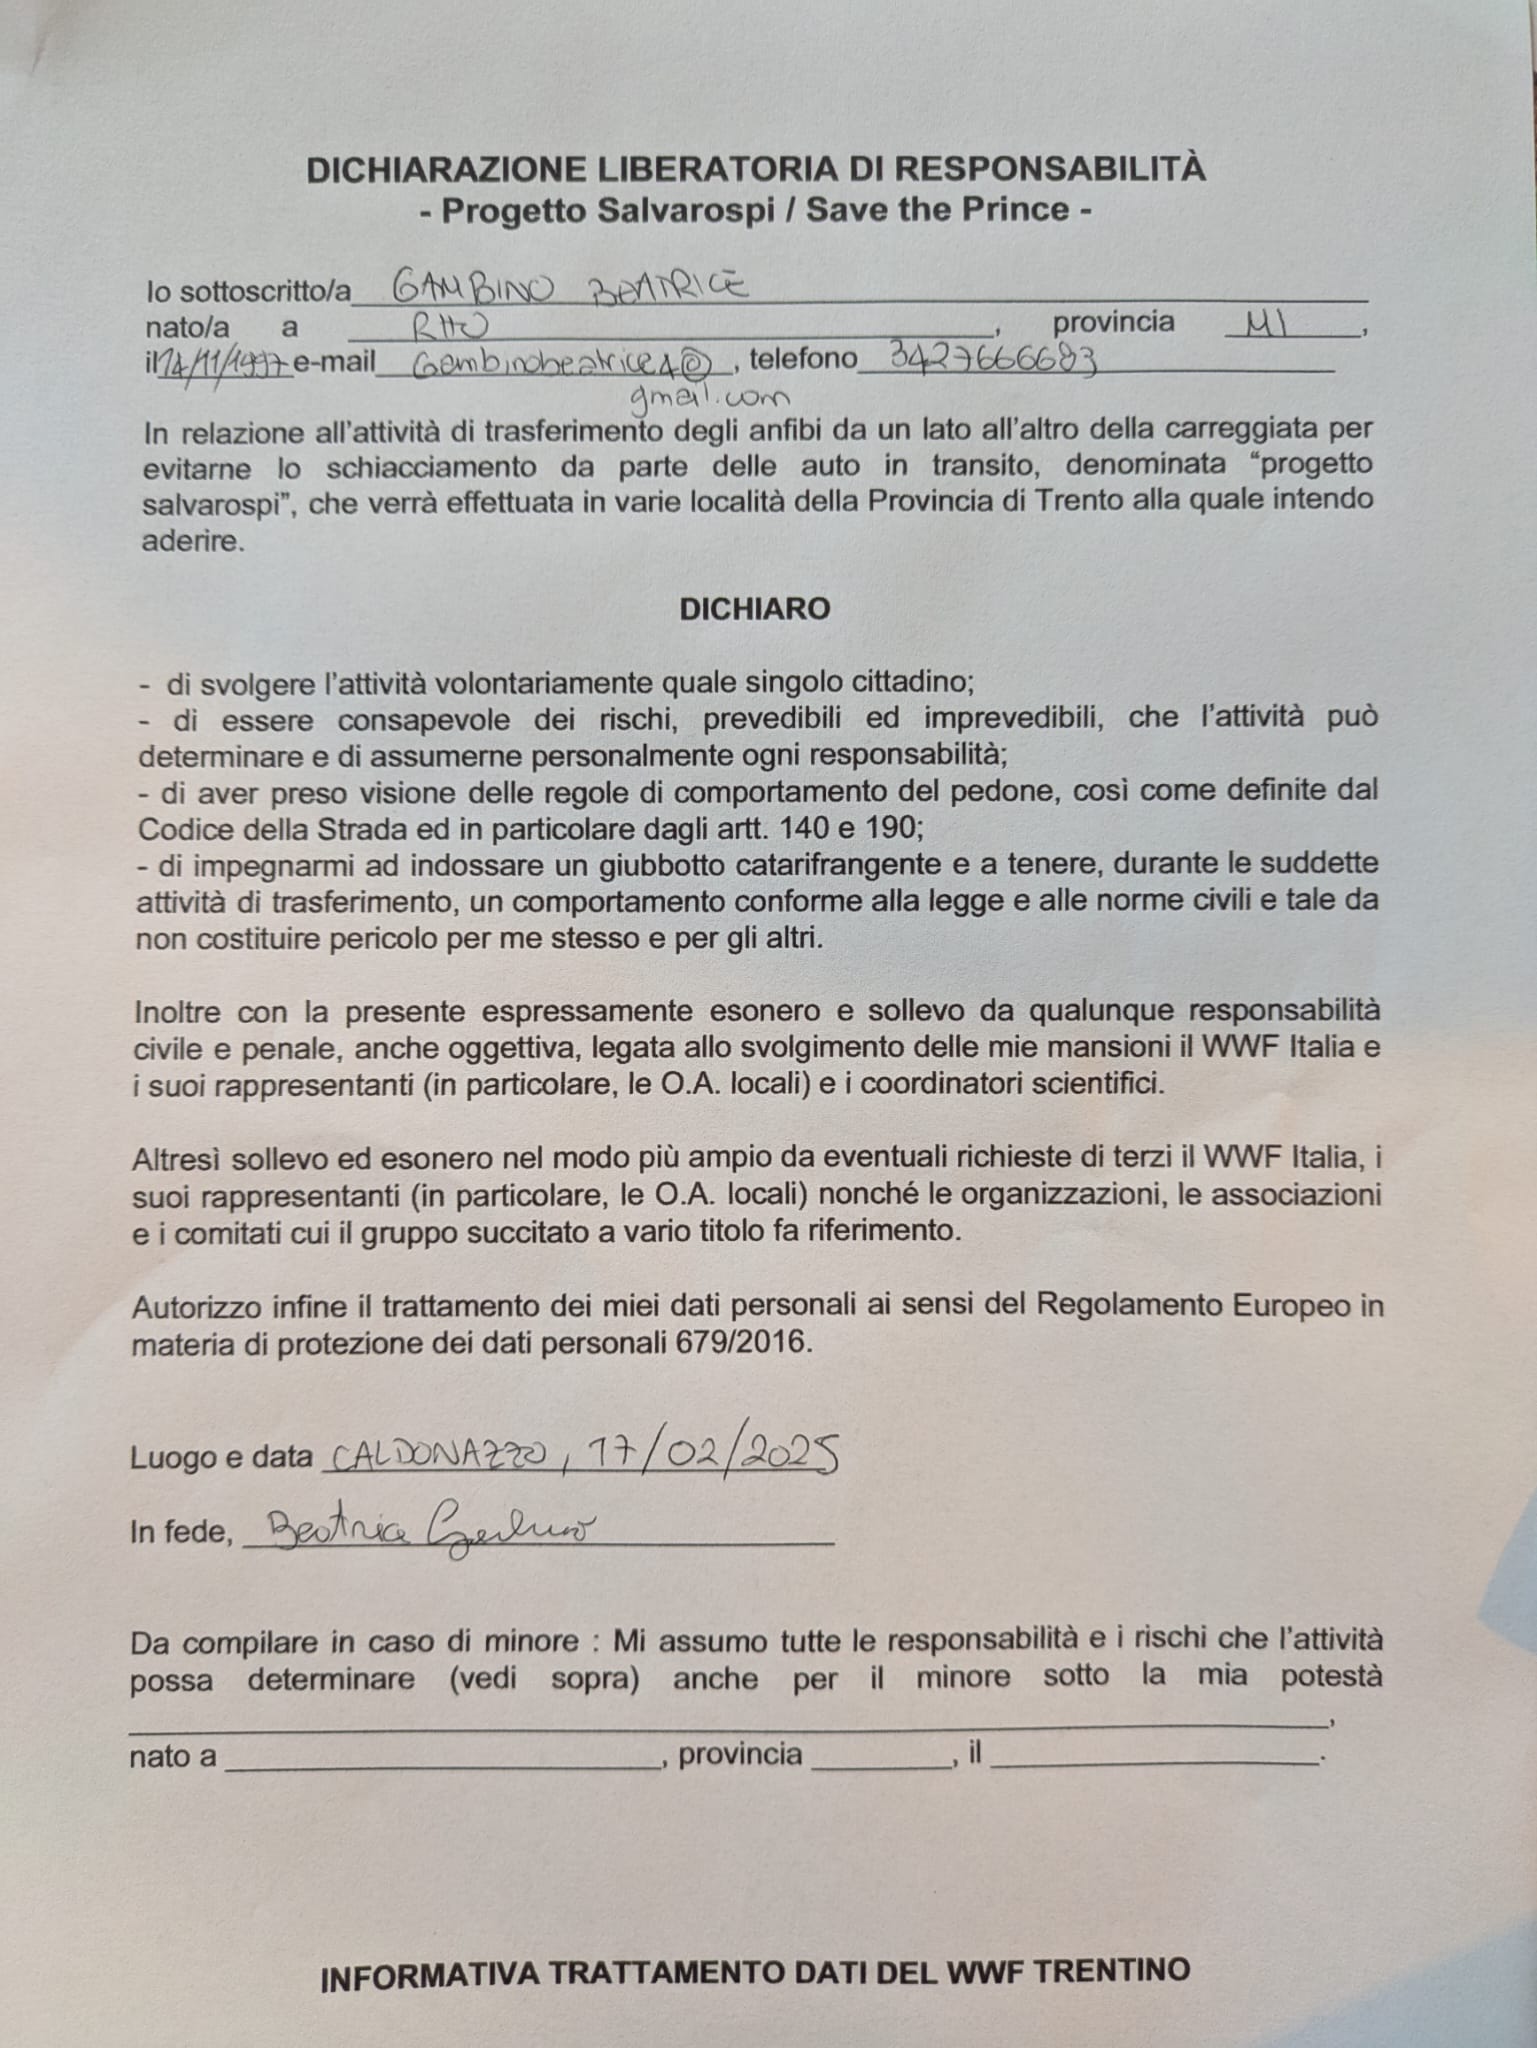 DICHIARAZIONE LIBERATORIA DI RESPONSABILITÀ
- Progetto Salvarospi / Save the Prince -
Io sottoscritto/a GAMBINO BEATRICE
nato/a a RHO, provincia MI,
il 14/11/1997 e-mail Gambinobeatrice4@, telefono 3427666683
gmail.com
In relazione all'attività di trasferimento degli anfibi da un lato all'altro della carreggiata per
evitarne lo schiacciamento da parte delle auto in transito, denominata “progetto
salvarospi”, che verrà effettuata in varie località della Provincia di Trento alla quale intendo
aderire.
DICHIARO
- di svolgere l'attività volontariamente quale singolo cittadino;
- di essere consapevole dei rischi, prevedibili ed imprevedibili, che l'attività può
determinare e di assumerne personalmente ogni responsabilità;
- di aver preso visione delle regole di comportamento del pedone, così come definite dal
Codice della Strada ed in particolare dagli artt. 140 e 190;
- di impegnarmi ad indossare un giubbotto catarifrangente e a tenere, durante le suddette
attività di trasferimento, un comportamento conforme alla legge e alle norme civili e tale da
non costituire pericolo per me stesso e per gli altri.
Inoltre con la presente espressamente esonero e sollevo da qualunque responsabilità
civile e penale, anche oggettiva, legata allo svolgimento delle mie mansioni il WWF Italia e
i suoi rappresentanti (in particolare, le O.A. locali) e i coordinatori scientifici.
Altresì sollevo ed esonero nel modo più ampio da eventuali richieste di terzi il WWF Italia, i
suoi rappresentanti (in particolare, le O.A. locali) nonché le organizzazioni, le associazioni
e i comitati cui il gruppo succitato a vario titolo fa riferimento.
Autorizzo infine il trattamento dei miei dati personali ai sensi del Regolamento Europeo in
materia di protezione dei dati personali 679/2016.
Luogo e data CALDONAZZO, 17/02/2025
In fede, Beatrice Gambino
Da compilare in caso di minore : Mi assumo tutte le responsabilità e i rischi che l'attività
possa determinare (vedi sopra) anche per il minore sotto la mia potestà
,
nato a , provincia , il .
INFORMATIVA TRATTAMENTO DATI DEL WWF TRENTINO